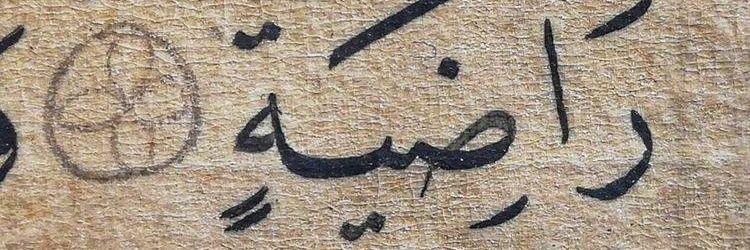 رَاضِيَةٍ